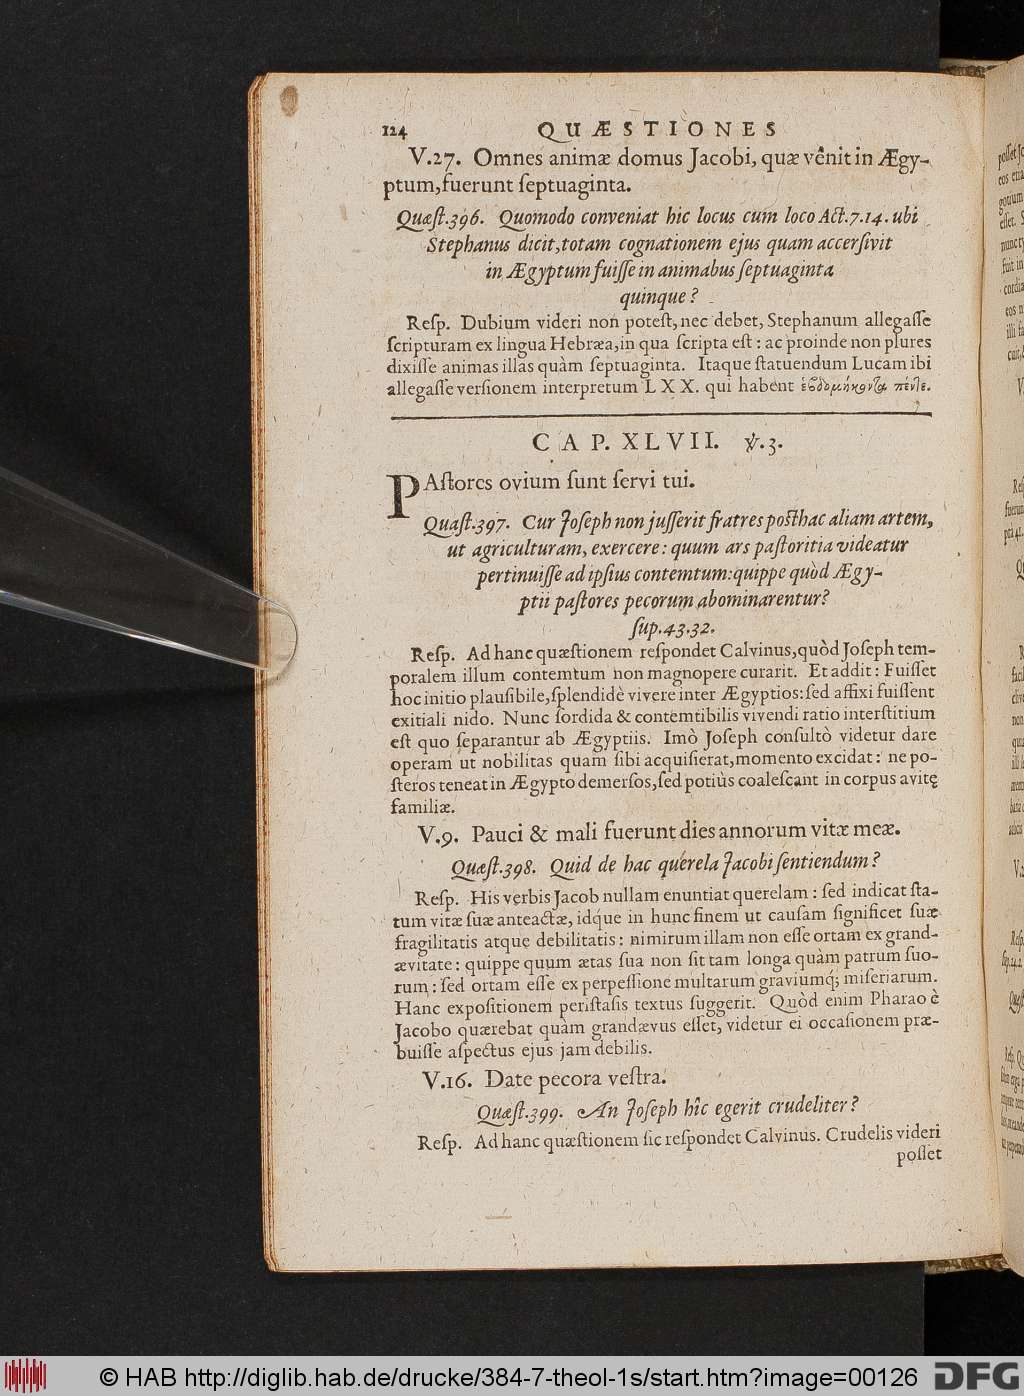 124 QUÆSTIONES
V.27. Omnes animæ domus Jacobi, quæ vênit in Ægy-
ptum, fuerunt ſeptuaginta.
Quæſt.396. Quomodo conveniat hic locus cum loco Act.7.14. ubi
Stephanus dicit, totam cognationem ejus quam accerſivit
in Ægyptum fuiſſe in animabus ſeptuaginta
quinque?
Reſp. Dubium videri non poteſt, nec debet, Stephanum allegaſſe
ſcripturam ex lingua Hebræa, in qua ſcripta eſt: ac proinde non plures
dixiſſe animas illas quàm ſeptuaginta. Itaque ſtatuendum Lucam ibi
allegaſſe verſionem interpretum LXX. qui habent ἑβδομήκοντα πέντε.
CAP. XLVII. ℣.3.
PAſtores ovium ſunt ſervi tui.
Quæſt.397. Cur Joſeph non juſſerit fratres poſthac aliam artem,
ut agriculturam, exercere: quum ars paſtoritia videatur
pertinuiſſe ad ipſius contemtum: quippe quòd Ægy-
ptii paſtores pecorum abominarentur?
ſup.43.32.
Reſp. Ad hanc quæſtionem reſpondet Calvinus, quòd Joſeph tem-
poralem illum contemtum non magnopere curarit. Et addit: Fuiſſet
hoc initio plauſibile, ſplendidè vivere inter Ægyptios: ſed affixi fuiſſent
exitiali nido. Nunc ſordida & contemtibilis vivendi ratio interſtitium
eſt quo ſeparantur ab Ægyptiis. Imò Joſeph conſultò videtur dare
operam ut nobilitas quam ſibi acquiſierat, momento excidat: ne po-
ſteros teneat in Ægypto demerſos, ſed potiùs coaleſcant in corpus avitę
familiæ.
V.9. Pauci & mali fuerunt dies annorum vitæ meæ.
Quæſt.398. Quid de hac querela Jacobi ſentiendum?
Reſp. His verbis Jacob nullam enuntiat querelam: ſed indicat ſta-
tum vitæ ſuæ anteactæ, idq́ue in hunc finem ut cauſam ſignificet ſuæ
fragilitatis atque debilitatis: nimirum illam non eſſe ortam ex grand-
ævitate: quippe quum ætas ſua non ſit tam longa quàm patrum ſuo-
rum: ſed ortam eſſe ex perpeſſione multarum graviumq́; miſeriarum.
Hanc expoſitionem periſtaſis textus ſuggerit. Quòd enim Pharao è
Jacobo quærebat quàm grandævus eſſet, videtur ei occaſionem præ-
buiſſe aſpectus ejus jam debilis.
V.16. Date pecora veſtra.
Quæſt.399. An Joſeph hîc egerit crudeliter?
Reſp. Ad hanc quæſtionem ſic reſpondet Calvinus. Crudelis videri
poſſet
© HAB http://diglib.hab.de/drucke/384-7-theol-1s/start.htm?image=00126
DFG